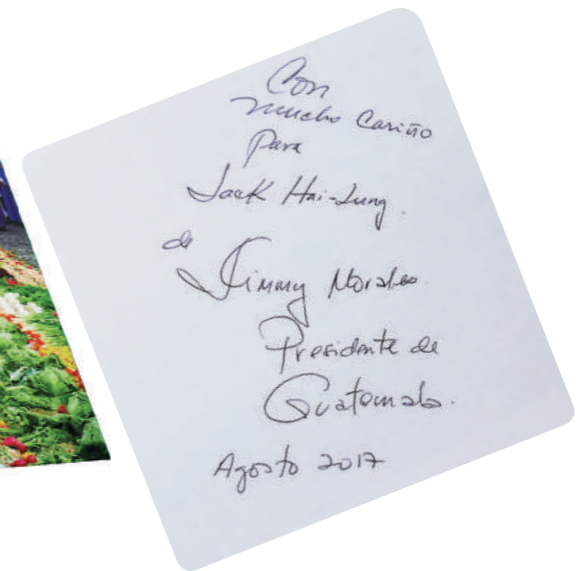 Con
mucho Cariño
Para
Jack Hai-Lung.
de
Jimmy Morales
Presidente de
Guatemala.
Agosto 2017